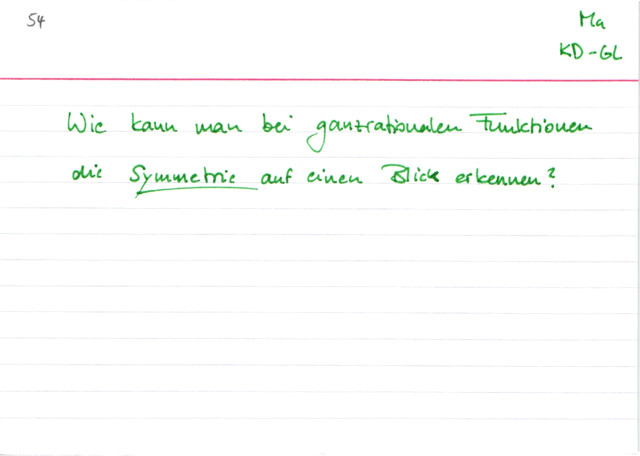 54
Ma
KD-GL
Wie kann man bei ganzrationalen Funktionen
die Symmetrie auf einen Blick erkennen?